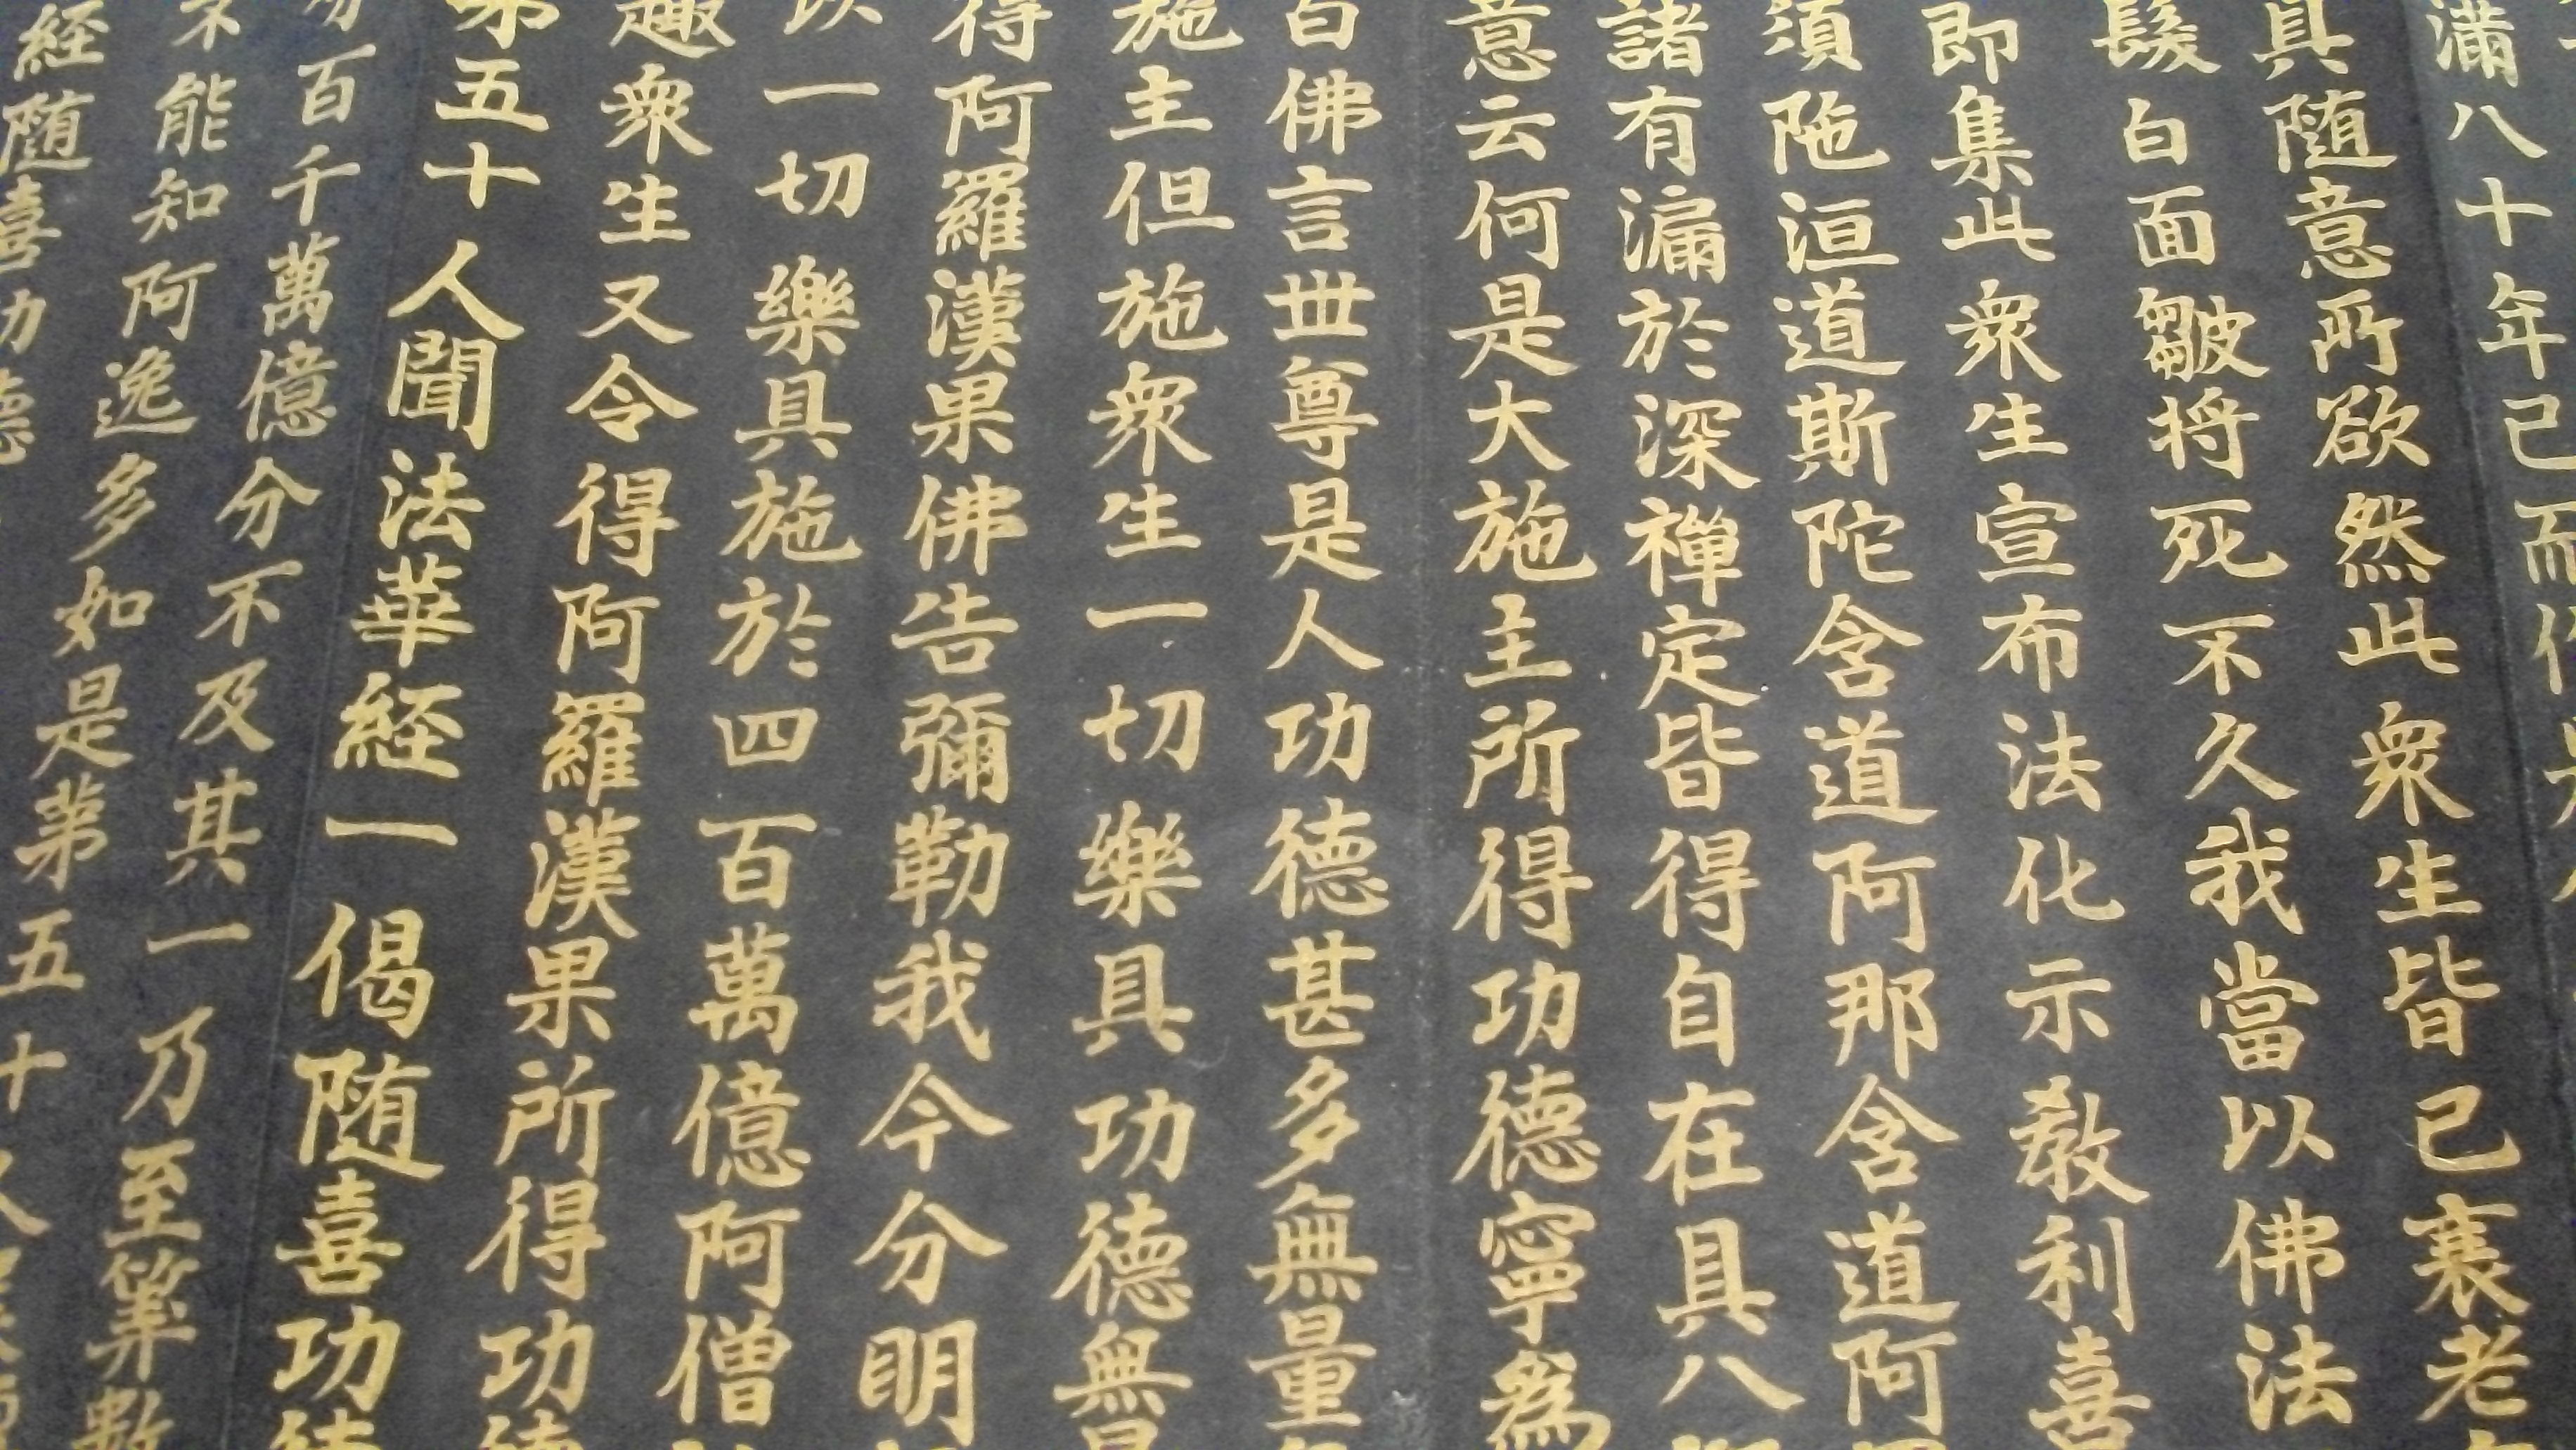 滿八十年已而作
具随意所欲然此衆生皆已衰老
髮白面皺将死不久我當以佛法
即集此衆生宣布法化示教利喜
須陁洹道斯陀含道阿那含道阿
諸有漏於深禅定皆得自在具八
意云何是大施主所得功德寧爲
白佛言世尊是人功德甚多無量
施主但施衆生一切樂具功德無
得阿羅漢果佛告彌勒我今分明
以一切樂具施於四百萬億阿僧
趣衆生又令得阿羅漢果所得功
第五十人聞法華経一偈随喜功
百千萬億分不及其一乃至筭數
不能知阿逸多如是第五十
経随喜功德